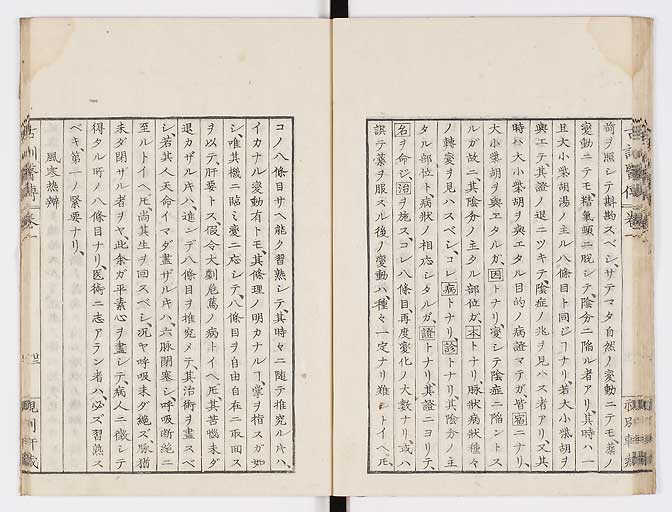 苛ヲ服シテ斟酌スベシ、サテマタ自然ノ変動ニテモ、薬ノ
変動ニテモ、精気頭ニ脱シテ、陰分ニ陥ル者アリ、其時ハ一
旦大小柴胡湯ノ主ル八條目ト同ジコナリ、若大小柴胡ヲ
與エテ、其證ノ退ニツキテ、陰症ノ兆ヲ見ハス者アリ、又其
時ハ大小柴胡ヲ與エタル目的ノ病證マテガ皆
大小柴胡ヲ與ヱタルガ、因トナリ変シテ陰症ニ陥ントス
ルガ故ニ、其陰分ノ主タル部位ガ、本トナリ、脉状病状種々
ノ轉変ヲ見ハスベシ、コレ病トナリ、診トナリ、其陰分ノ主
タル部位ト、病状ノ相応シタルガ、證トナリ、其證ニヨリテ、
名ヲ命ジ、治ヲ施ス、コレ八條目、再度変化ノ大数ナリ、或ハ
誤テ薬ヲ服スル後ノ変動ハ、種々一定ナリ難シトイヘ𪜈、
コノ八條目サヘ能ク習熟シテ、其時々ニ随テ推究ルキハ、
イカナル変動有トモ、其條理ノ明カナルヿ、掌ヲ指スガ如
シ、唯其機ニ臨ミ変ニ応シテ、八條目ヲ自由自在ニ取回ス
ヲ以テ、肝要トス、假令大劇危篤ノ病トイヘ𪜈、其苦悩未ダ
退カザルキハ、進ンデ八條目ヲ推究メテ、其治術ヲ盡スベ
シ、若其人天命イマダ盡ザルキハ、六脉閉塞シ、呼吸断絶ニ
至ルトイヘ𪜈、尚其生ヲ回スベシ、况ヤ呼吸未ダ絶ズ、脉猶
未ダ閉ザル者ヲヤ、此余ガ平素心ヲ盡シテ、病人ニ徴シテ
得タル所ノ八條目ナリ、医術ニ志アラン者ハ、必ズ習熟ス
ベキ第一ノ緊要ナリ、
風寒熱辨